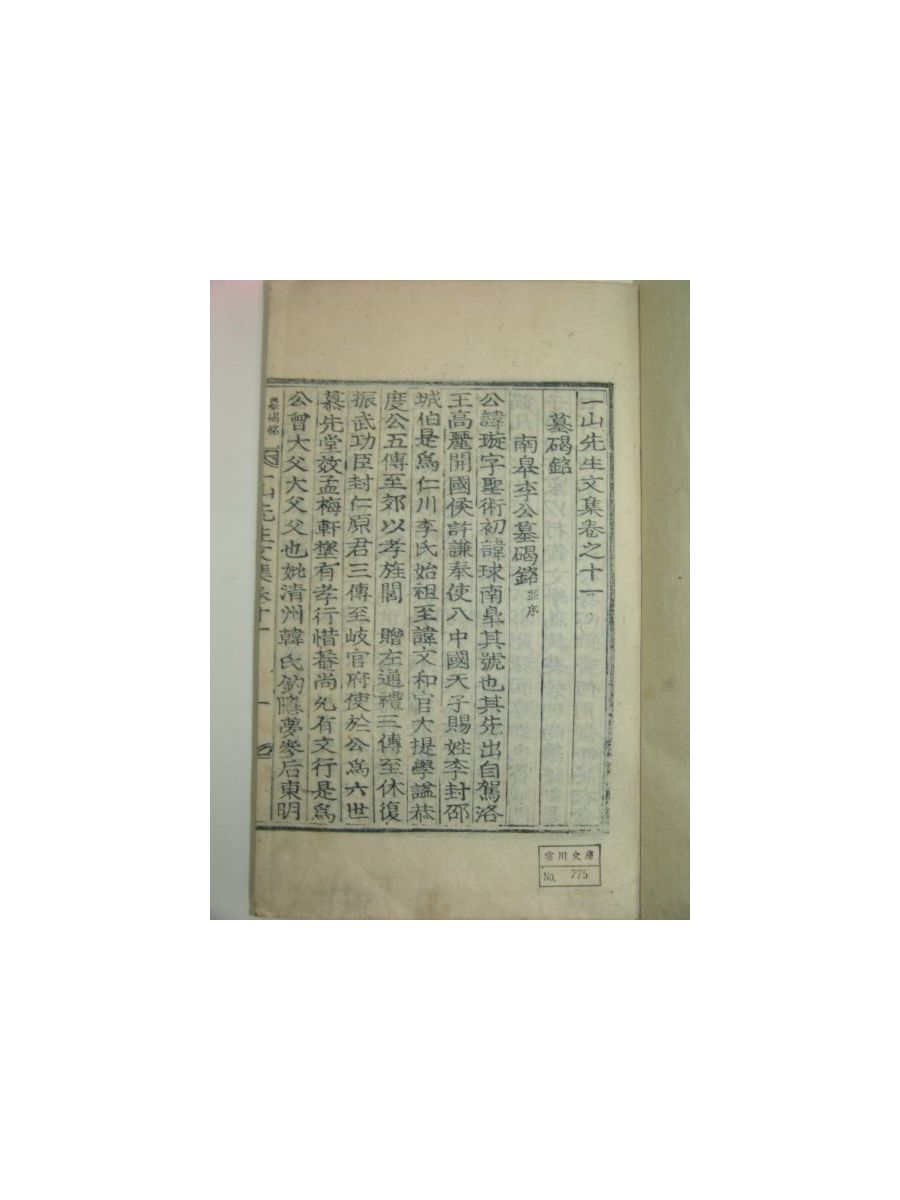 一山先生文集卷之十一
墓碣銘
南皋李公墓碣銘 並序
公諱璇字聖術初諱球南皐其號也其先出自駕洛
王高麗開國侯許謙奉使八中國天子賜姓李封邵
城伯是爲仁川李氏始祖至諱文和官大提學諡恭
度公五傳至郊以孝旌閭 贈左通禮三傳至休復
振武功臣封仁原君三傳至岐官府使於公爲六世
慕先堂效孟梅軒墍有孝行惜菴尚允有文行是爲
公曾大父大父父也妣清州韓氏釣隱夢參后東明
墓碣銘
一山先生文集卷十一
一
雲川文庫
No. 775